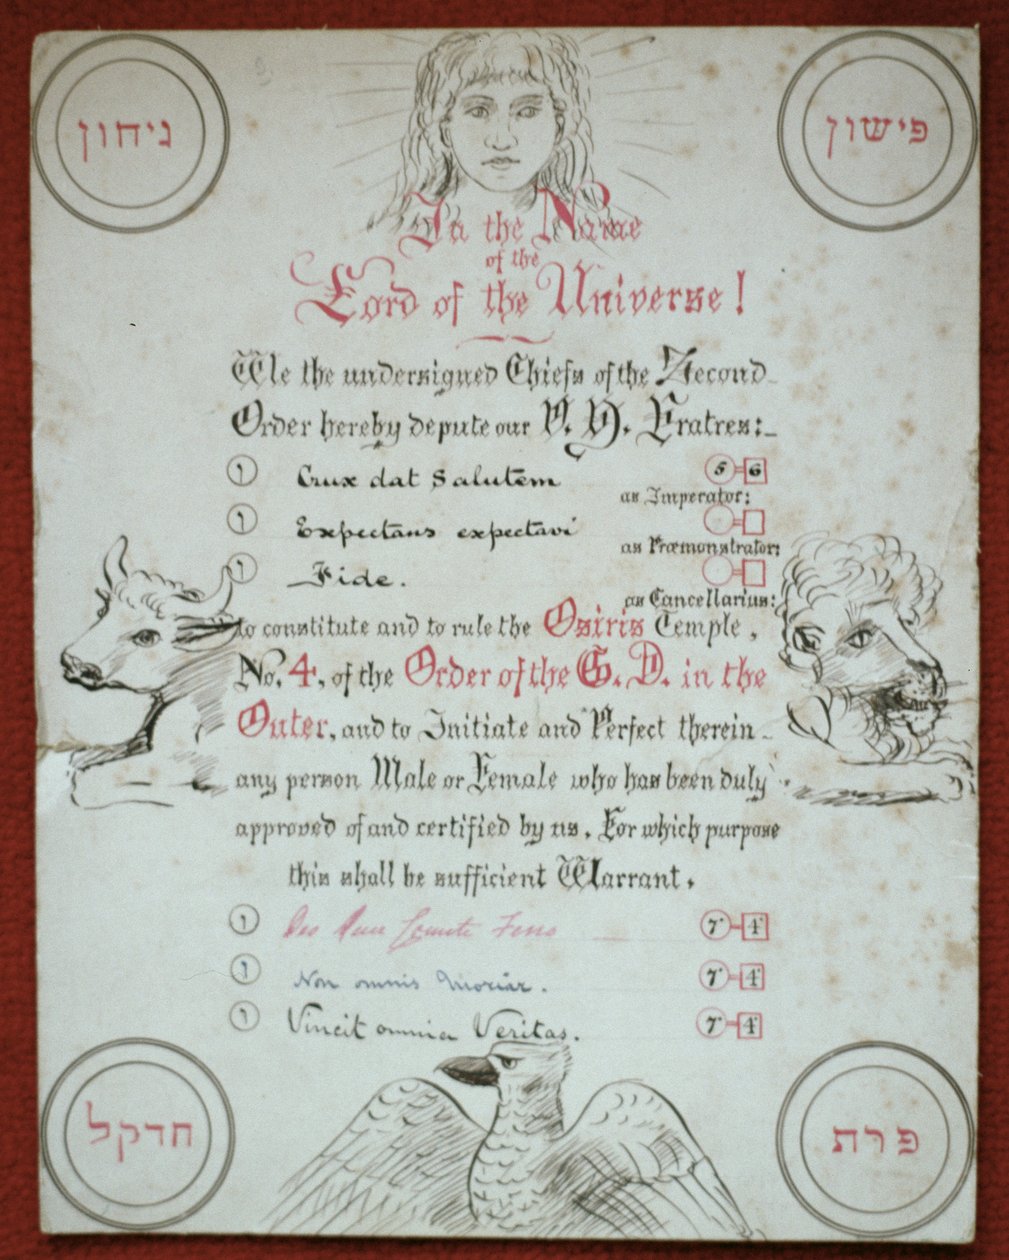 גיחון
פישון
In the Name
of the
Lord of the Universe!
We the undersigned Chiefs of the Second
Order hereby depute our V. H. Fratres:_
Crux dat Salutem 5=6
as Imperator:
Expectans expectavi =
as Præmonstrator:
Fide. =
as Cancellarius:
to constitute and to rule the Osiris Temple,
No. 4, of the Order of the G. D. in the
Outer, and to Initiate and Perfect therein _
any person Male or Female who has been duly
approved of and certified by us. For which purpose
this shall be sufficient Warrant.
Deo Duce Comite Ferro 7=4
Non omnis Moriar. 7=4
Vincit omnia Veritas. 7=4
חדקל
פרת